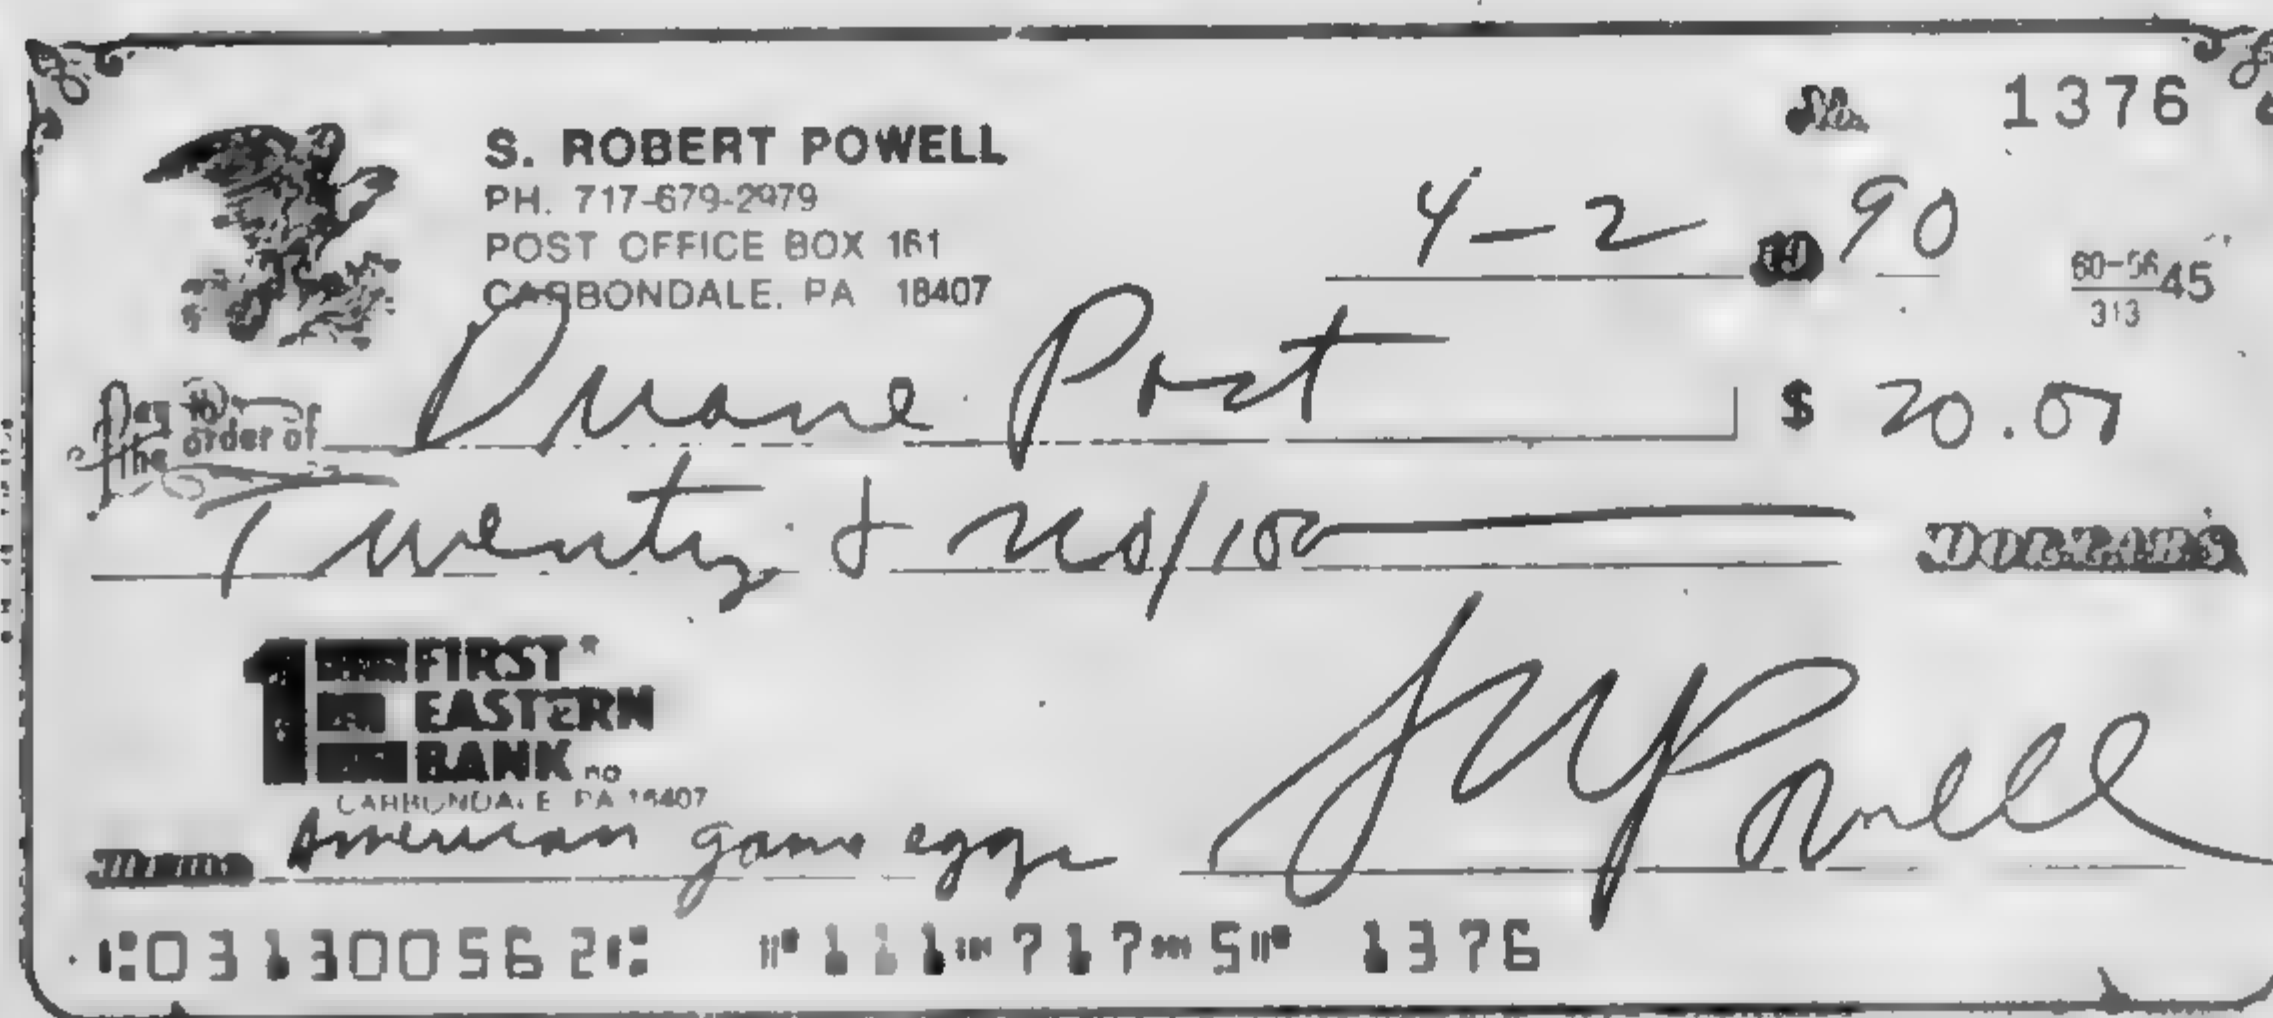 No 1376
S. ROBERT POWELL
PH. 717-679-2979
POST OFFICE BOX 161
CARBONDALE, PA 18407
4-2 19 90
60-56 45
313
Pay to the order of Duane Post $ 20.00
Twenty & no/100 DOLLARS
1 FIRST EASTERN BANK na
CARBONDALE PA 18407
Memo American game eggs
S R Powell
⑆031300562⑆ ⑈111⑉717⑉5⑈ 1376